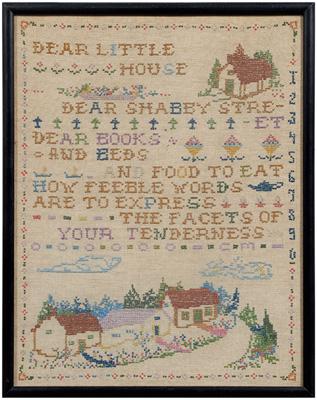 DEAR LITTLE
HOUSE
DEAR SHABBY STRE-
ET
DEAR BOOKS
AND BEDS
AND FOOD TO EAT
HOW FEEBLE WORDS
ARE TO EXPRESS
THE FACETS OF
YOUR TENDERNESS
1
2
3
4
5
6
7
8
9
0